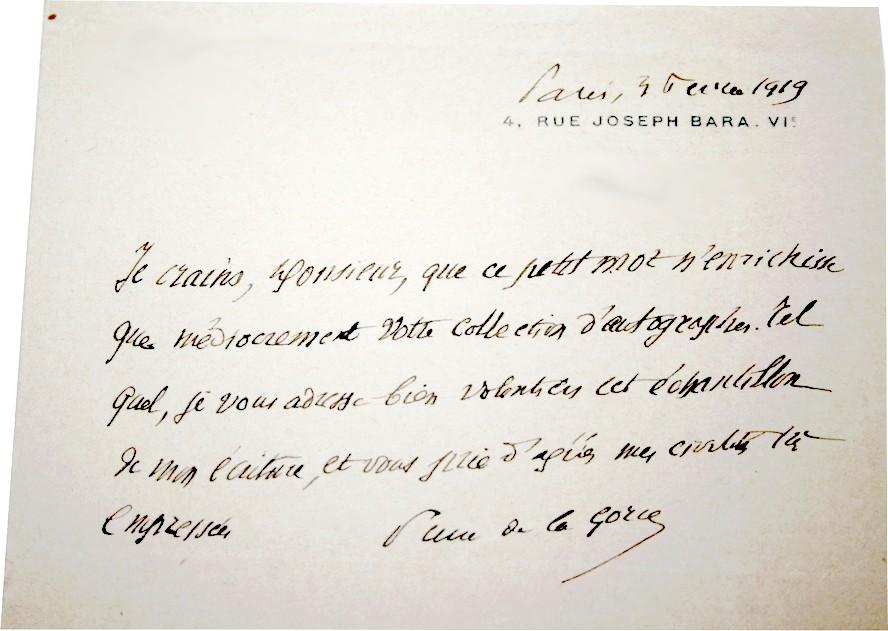 Paris, 3 Février 1919
4, RUE JOSEPH BARA. VIe
Je crains, Monsieur, que ce petit mot n'enrichisse
que médiocrement votre collection d'autographes. Tel
quel, je vous adresse bien volontiers cet échantillon
de mon écriture, et vous prie d'agréer mes civilités très
empressées
Pierre de la Gorce